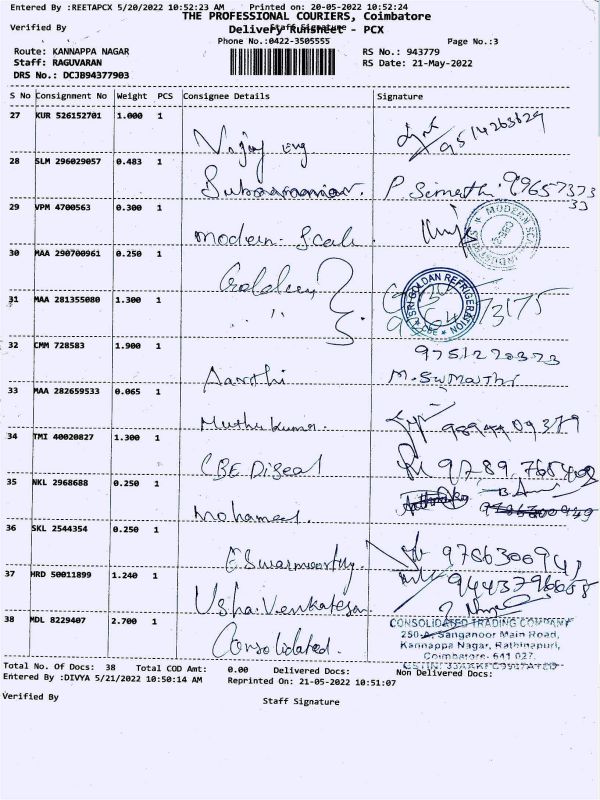 Entered By :REETAPCX 5/20/2022 10:52:23 AM Printed on: 20-05-2022 10:52:24
THE PROFESSIONAL COURIERS, Coimbatore
Verified By Staff Signature
Delivery Runsheet - PCX
Phone No.:0422-3505555 Page No.:3
Route: KANNAPPA NAGAR RS No.: 943779
Staff: RAGUVARAN RS Date: 21-May-2022
DRS No.: DCJB94377903
S No Consignment No Weight PCS Consignee Details Signature
27 KUR 526152701 1.000 1
Vijay eng 9514263629
28 SLM 296029057 0.483 1
Subramanian. P Sumathi.
29 VPM 4700563 0.300 1
MODERN
modern. Scale.
30 MAA 290700961 0.250 1
Golden
SRI GOLDAN REFRIGERATION
31 MAA 281355080 1.300 1
CBE
32 CMM 728583 1.900 1
Aarthi M. SUMATHI
33 MAA 282659533 0.065 1
Muthukumar.
34 TMI 40020827 1.300 1
CBE Diesel
35 NKL 2968688 0.250 1
Mohamed.
36 SKL 2544354 0.250 1
ESwarmoorthy.
37 HRD 50011899 1.240 1
Usha.Venkatesan
38 MDL 8229407 2.700 1
Consolidated.
CONSOLIDATED TRADING COMPANY
250-A, Sanganoor Main Road,
Kannappa Nagar, Rathinapuri,
Coimbatore- 641 027.
Total No. Of Docs: 38 Total COD Amt: 0.00 Delivered Docs: Non Delivered Docs:
Entered By :DIVYA 5/21/2022 10:50:14 AM Reprinted On: 21-05-2022 10:51:07
Verified By Staff Signature